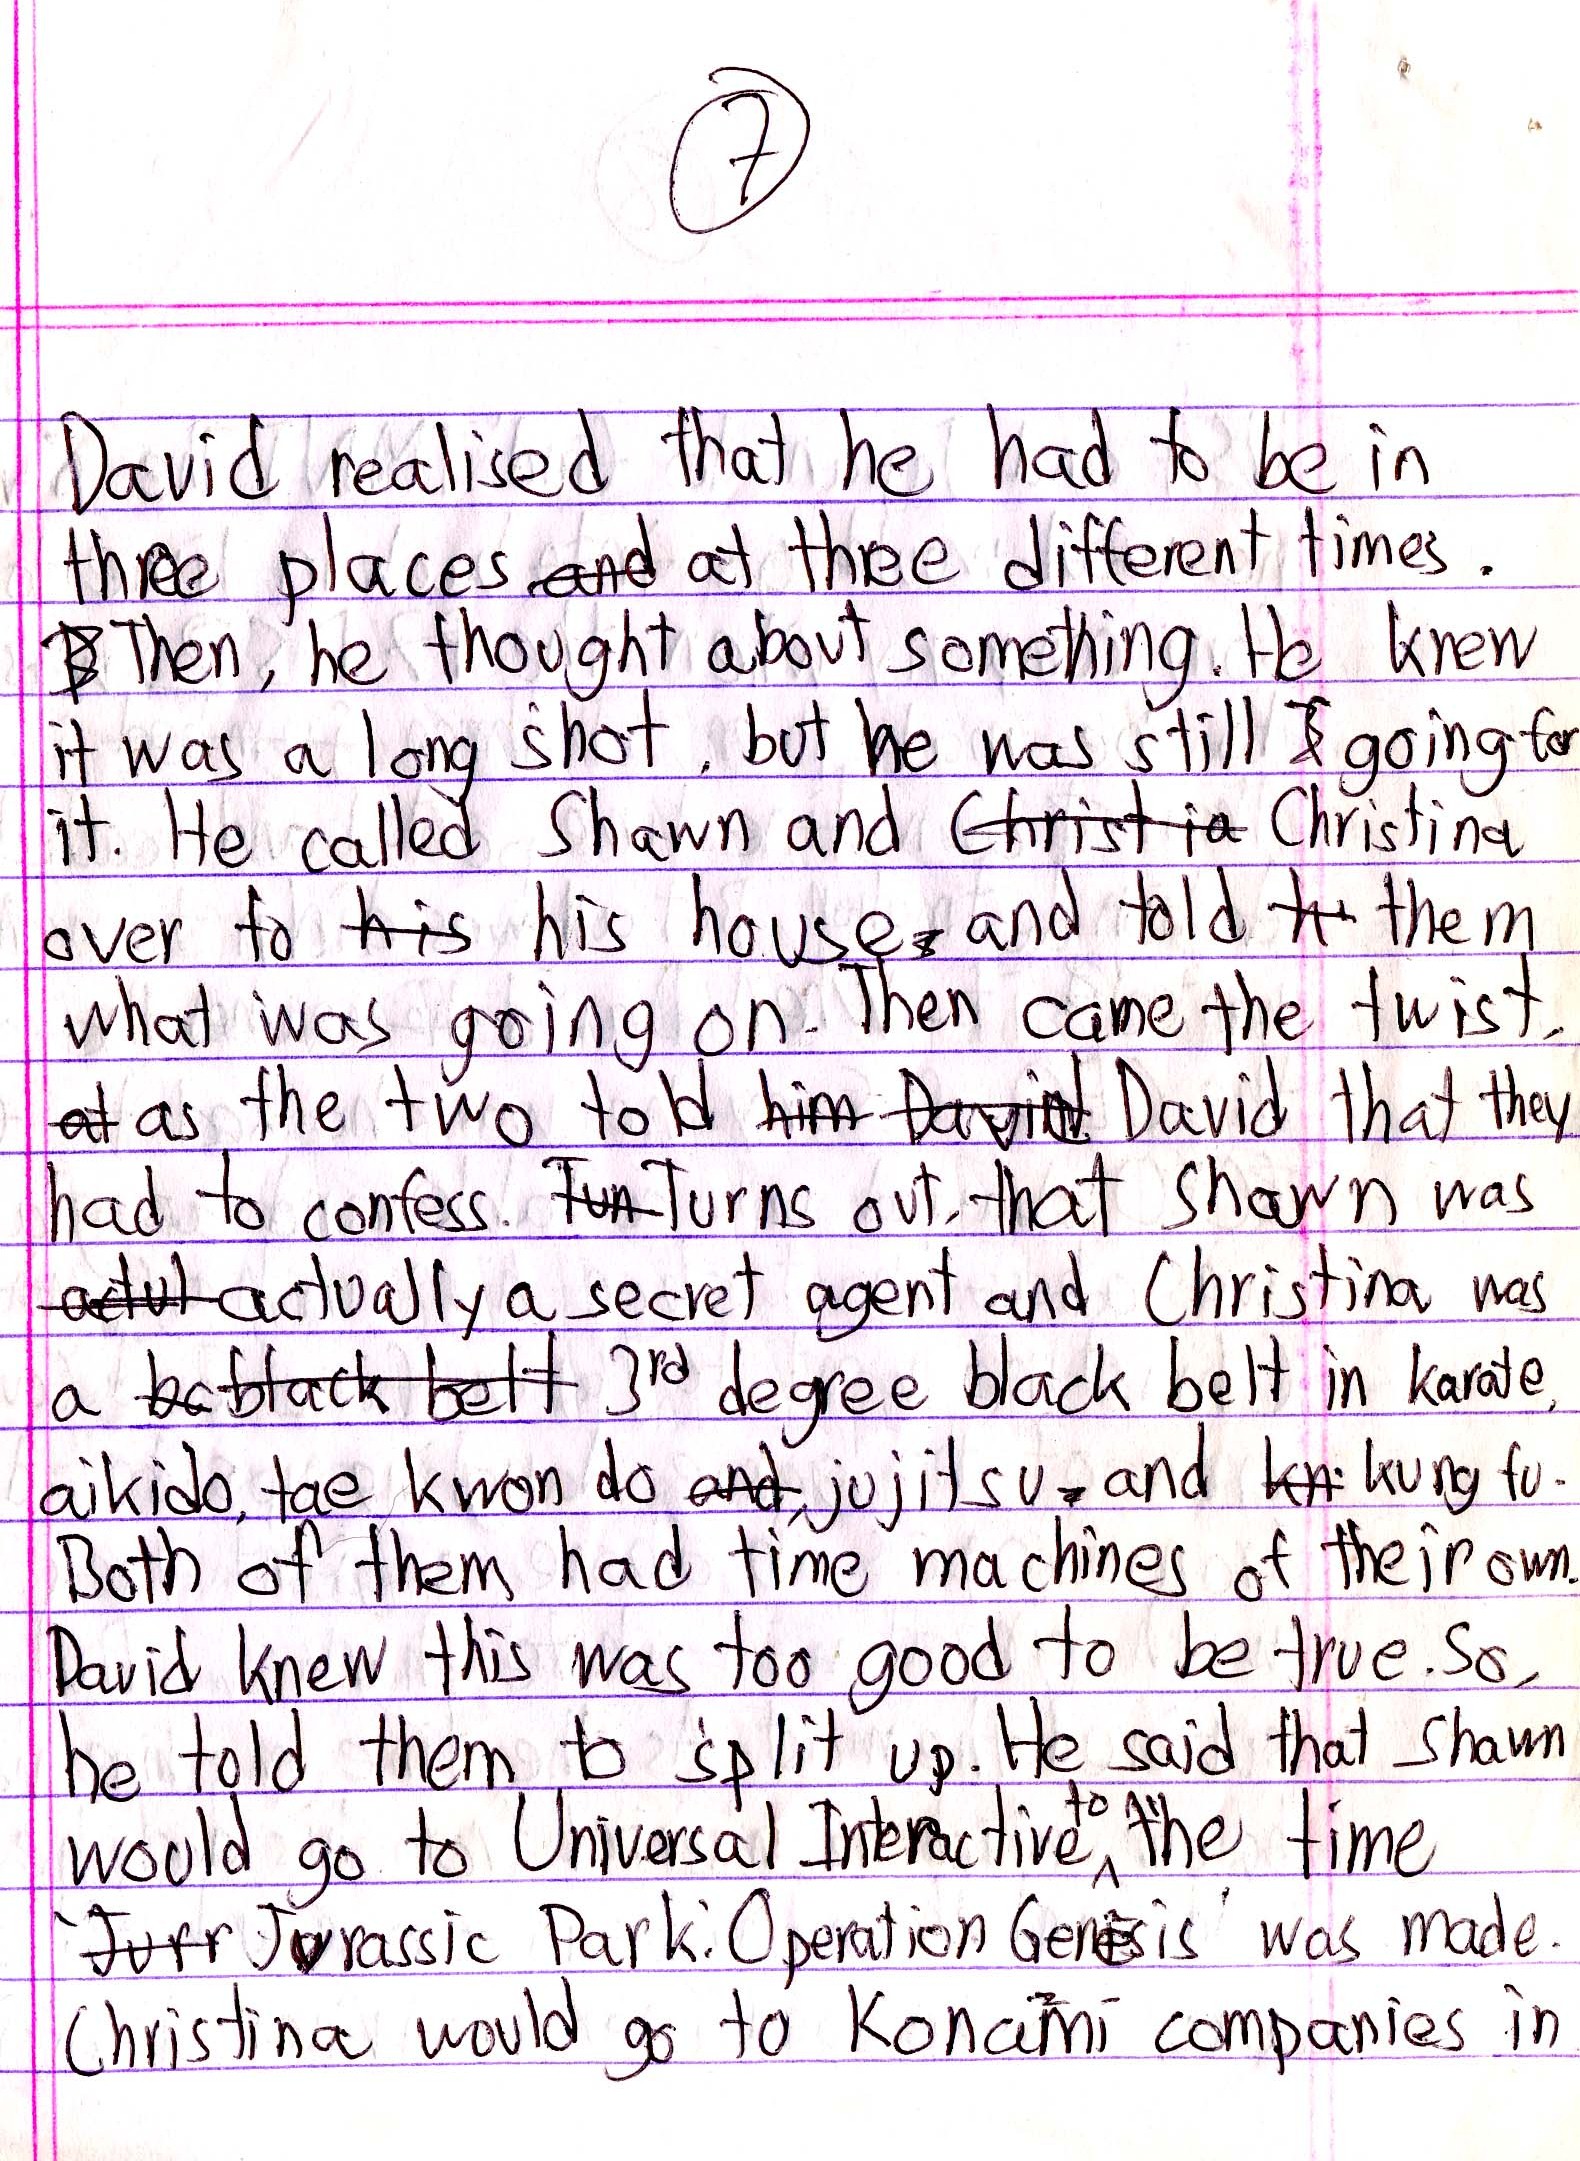 7
David realised that he had to be in
three places and at three different times.
Then, he thought about something. He knew
it was a long shot, but he was still going for
it. He called Shawn and Christia Christina
over to his his house, and told th them
what was going on. Then came the twist,
at as the two told him David David that they
had to confess. Tun Turns out, that Shawn was
actul actually a secret agent and Christina was
a bc black belt 3rd degree black belt in karate,
aikido, tae kwon do and, jujitsu, and kn kung fu.
Both of them had time machines of their own.
David knew this was too good to be true. So,
he told them to split up. He said that Shawn
would go to Universal Interactive, to the time
'Jurr Jurassic Park: Operation Genesis' was made.
Christina would go to Konami companies in